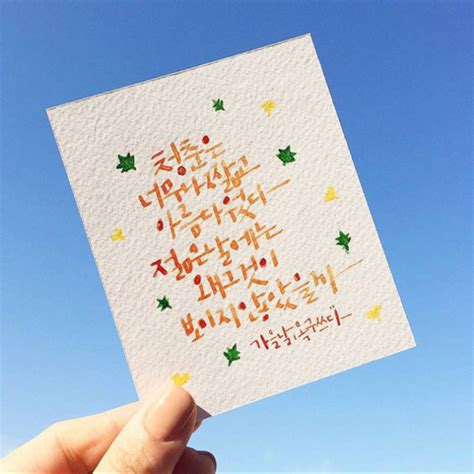 청춘은
너무나 짧고
아름다웠다
젊은 날에는
왜 그것이
보이지 않았을까
가을날, 쓰다